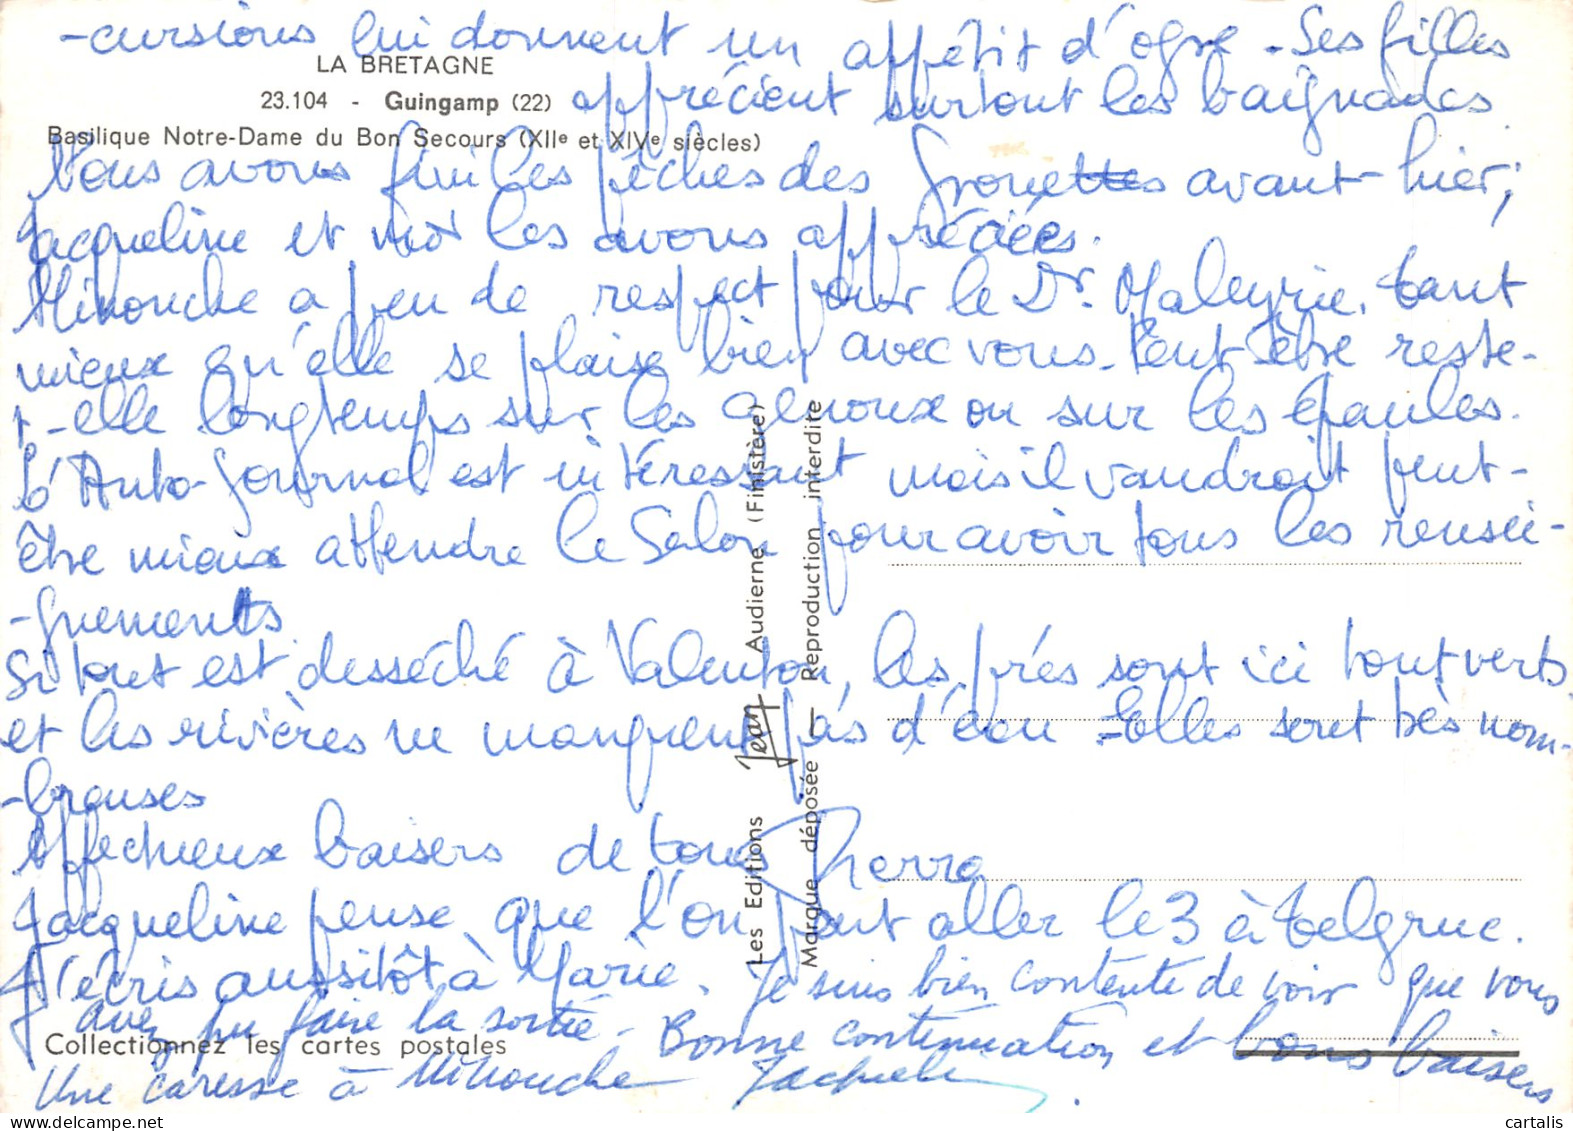 -cursions lui donnent un appétit d'ogre - Ses filles
LA BRETAGNE
23.104 - Guingamp (22)
apprécient surtout les baignades
Basilique Notre-Dame du Bon Secours (XIIe et XIVe siècles)
Nous avons fini les pêches des avant-hier;
Jacqueline et moi les avons appréciées.
Minouche a peu de respect pour le Dr. Maleyrie, tant
mieux qu'elle se plaise bien avec vous. Peut être reste-
t-elle longtemps sur les genoux ou sur les épaules.
L'Auto-Journal est intéressant mais il vaudrait peut-
être mieux attendre le Salon pour avoir tous les rensei-
-gnements
Si tout est desséché à Valenton, les prés sont ici tout verts
et les rivières ne manquent pas d'eau - Elles sont très nom-
-breuses
Affectueux baisers de tous Pierre
Jacqueline pense que l'on peut aller le 3 à Telgruc.
J'écris aussitôt à Marie. Je suis bien contente de voir que vous
avez pu faire la sortie - Bonne continuation et bons baisers
Collectionnez les cartes postales
Une caresse à Minouche Jacqueline
Les Editions Jean Audierne (Finistère)
Marque déposée - Reproduction interdite
cartalis